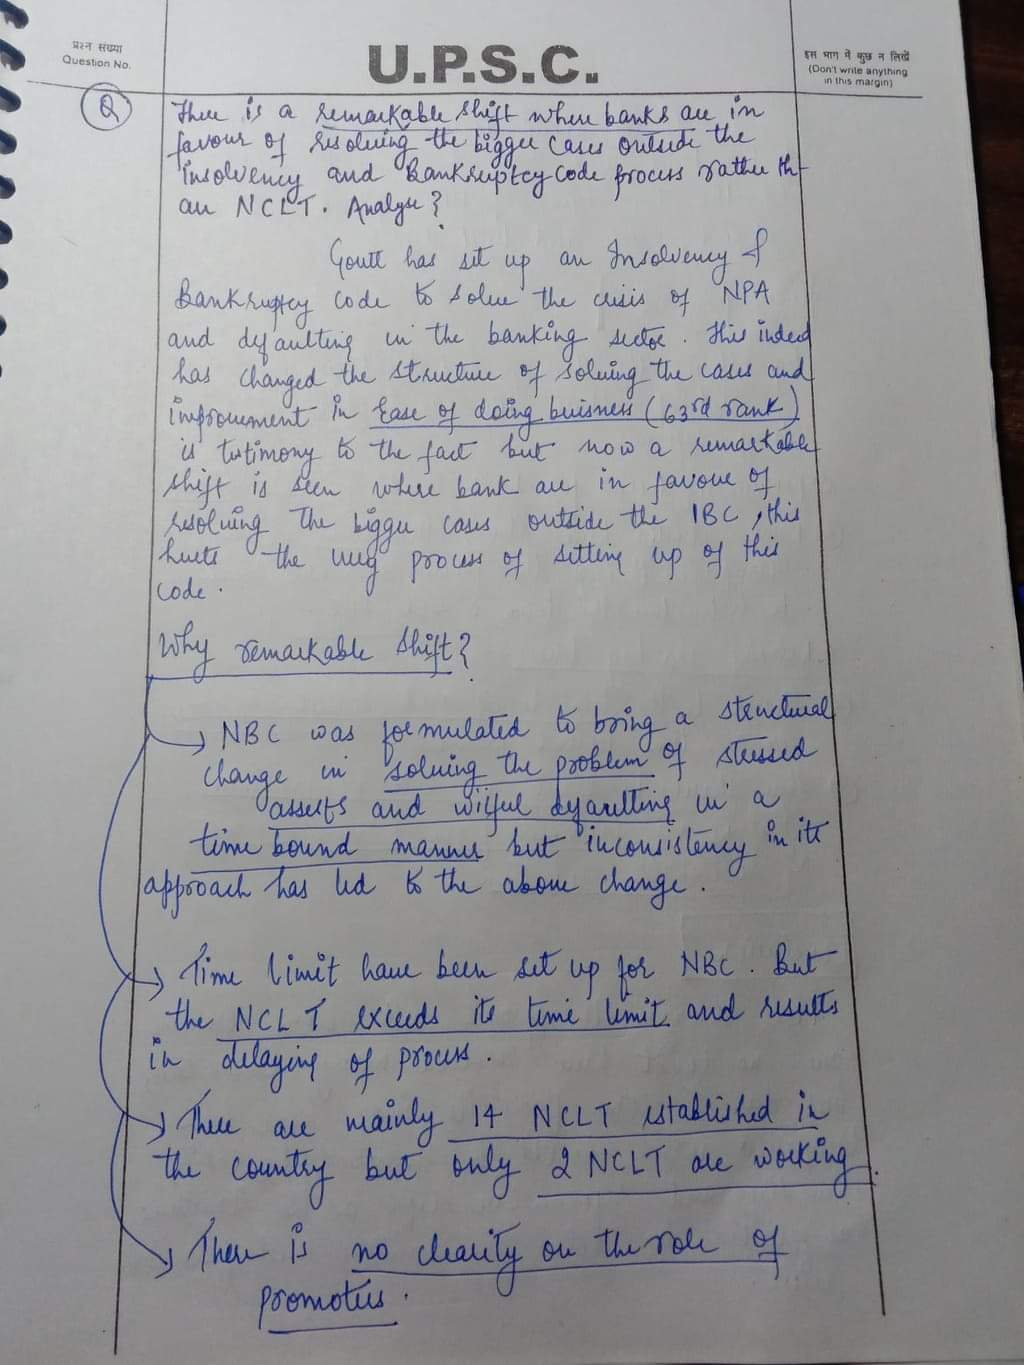 प्रश्न संख्या
Question No.
U.P.S.C.
इस भाग में कुछ न लिखें
(Don't write anything
in this margin)
Q
There is a remarkable shift where banks are in
favour of resolving the bigger cases outside the
insolvency and Bankruptcy Code process rather th-
an NCLT. Analyse?
Govtt has set up an Insolvency &
Bankruptcy code to solve the crisis of NPA
and defaulting in the banking sector. This indeed
has changed the structure of solving the cases and
improvement in Ease of doing buisness (63rd rank)
is tutimony to the fact but now a remarkable
shift is seen where bank are in favour of
resolving the bigger cases outside the IBC, this
hurts the very process of setting up of this
code.
Why remarkable shift?
→ NBC was formulated to bring a structural
change in solving the problem of stressed
assets and wilful defaulting in a
time bound manner but inconsistency in its
approach has led to the above change.
→ Time limit have been set up for NBC. But
the NCLT exceeds its time limit and results
in delaying of process.
→ There are mainly 14 NCLT established in
the country but only 2 NCLT are working.
→ There is no clearity on the role of
promoters.